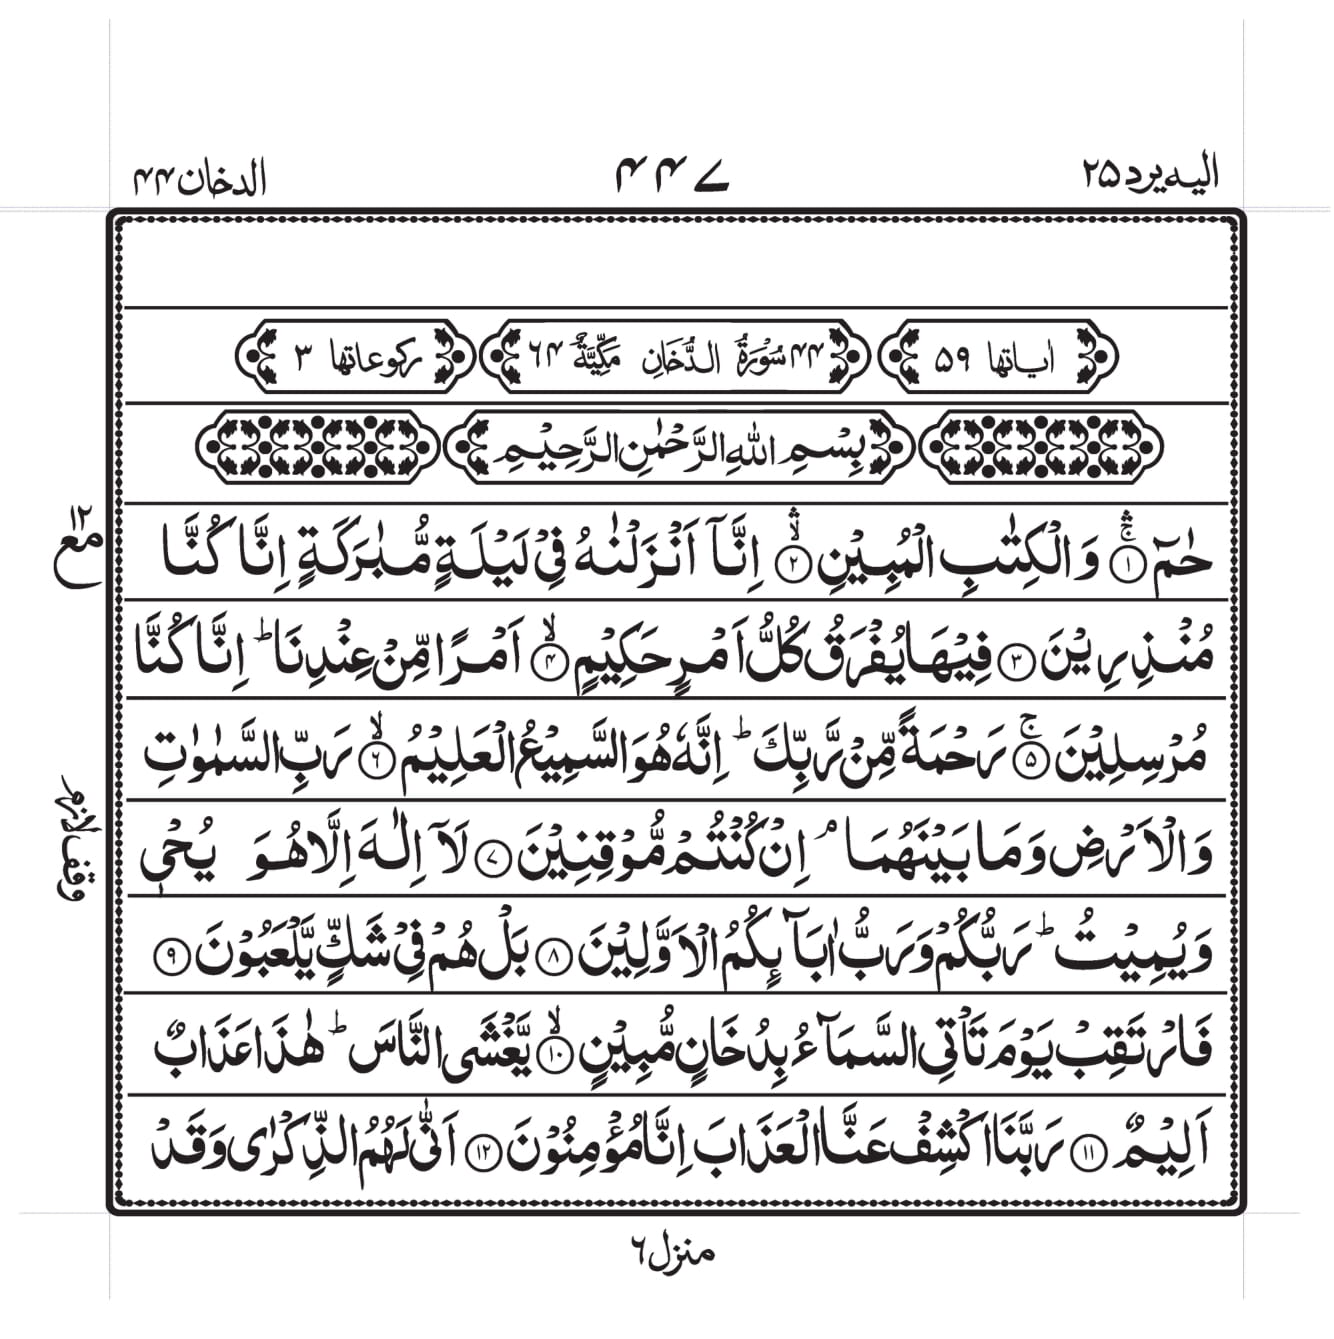 الیه یرد ۲۵
۴۴۷
الدخان ۴۴
اٰیاتها ۵۹
۴۴ سُوْرَةُ الدُّخَانِ مَکِّیَّةٌ ۶۴
رکوعاتها ۳
بِسْمِ اللّٰهِ الرَّحْمٰنِ الرَّحِیْمِ
حٰمٓ ۚۛ‏﴿۱﴾ وَ الْکِتٰبِ الْمُبِیْنِ ۙۛ‏﴿۲﴾ اِنَّاۤ اَنْزَلْنٰهُ فِیْ لَیْلَةٍ مُّبٰرَکَةٍ اِنَّا کُنَّا
مُنْذِرِیْنَ ﴿۳﴾ فِیْهَا یُفْرَقُ کُلُّ اَمْرٍ حَکِیْمٍ ۙ﴿۴﴾ اَمْرًا مِّنْ عِنْدِنَا ؕ اِنَّا کُنَّا
مُرْسِلِیْنَ ۚ﴿۵﴾ رَحْمَةً مِّنْ رَّبِّکَ ؕ اِنَّهٗ هُوَ السَّمِیْعُ الْعَلِیْمُ ۙ﴿۶﴾ رَبِّ السَّمٰوٰتِ
وَ الْاَرْضِ وَ مَا بَیْنَهُمَا ۘ اِنْ کُنْتُمْ مُّوْقِنِیْنَ ﴿۷﴾ لَاۤ اِلٰهَ اِلَّا هُوَ یُحْیٖ
وَ یُمِیْتُ ؕ رَبُّکُمْ وَ رَبُّ اٰبَآئِکُمُ الْاَوَّلِیْنَ ﴿۸﴾ بَلْ هُمْ فِیْ شَکٍّ یَّلْعَبُوْنَ ﴿۹﴾
فَارْتَقِبْ یَوْمَ تَاْتِی السَّمَآءُ بِدُخَانٍ مُّبِیْنٍ ۙ﴿۱۰﴾ یَّغْشَی النَّاسَ ؕ هٰذَا عَذَابٌ
اَلِیْمٌ ﴿۱۱﴾ رَبَّنَا اکْشِفْ عَنَّا الْعَذَابَ اِنَّا مُؤْمِنُوْنَ ﴿۱۲﴾ اَنّٰی لَهُمُ الذِّکْرٰی وَ قَدْ
۱۲
مع
وقف لازم
منزل ۶